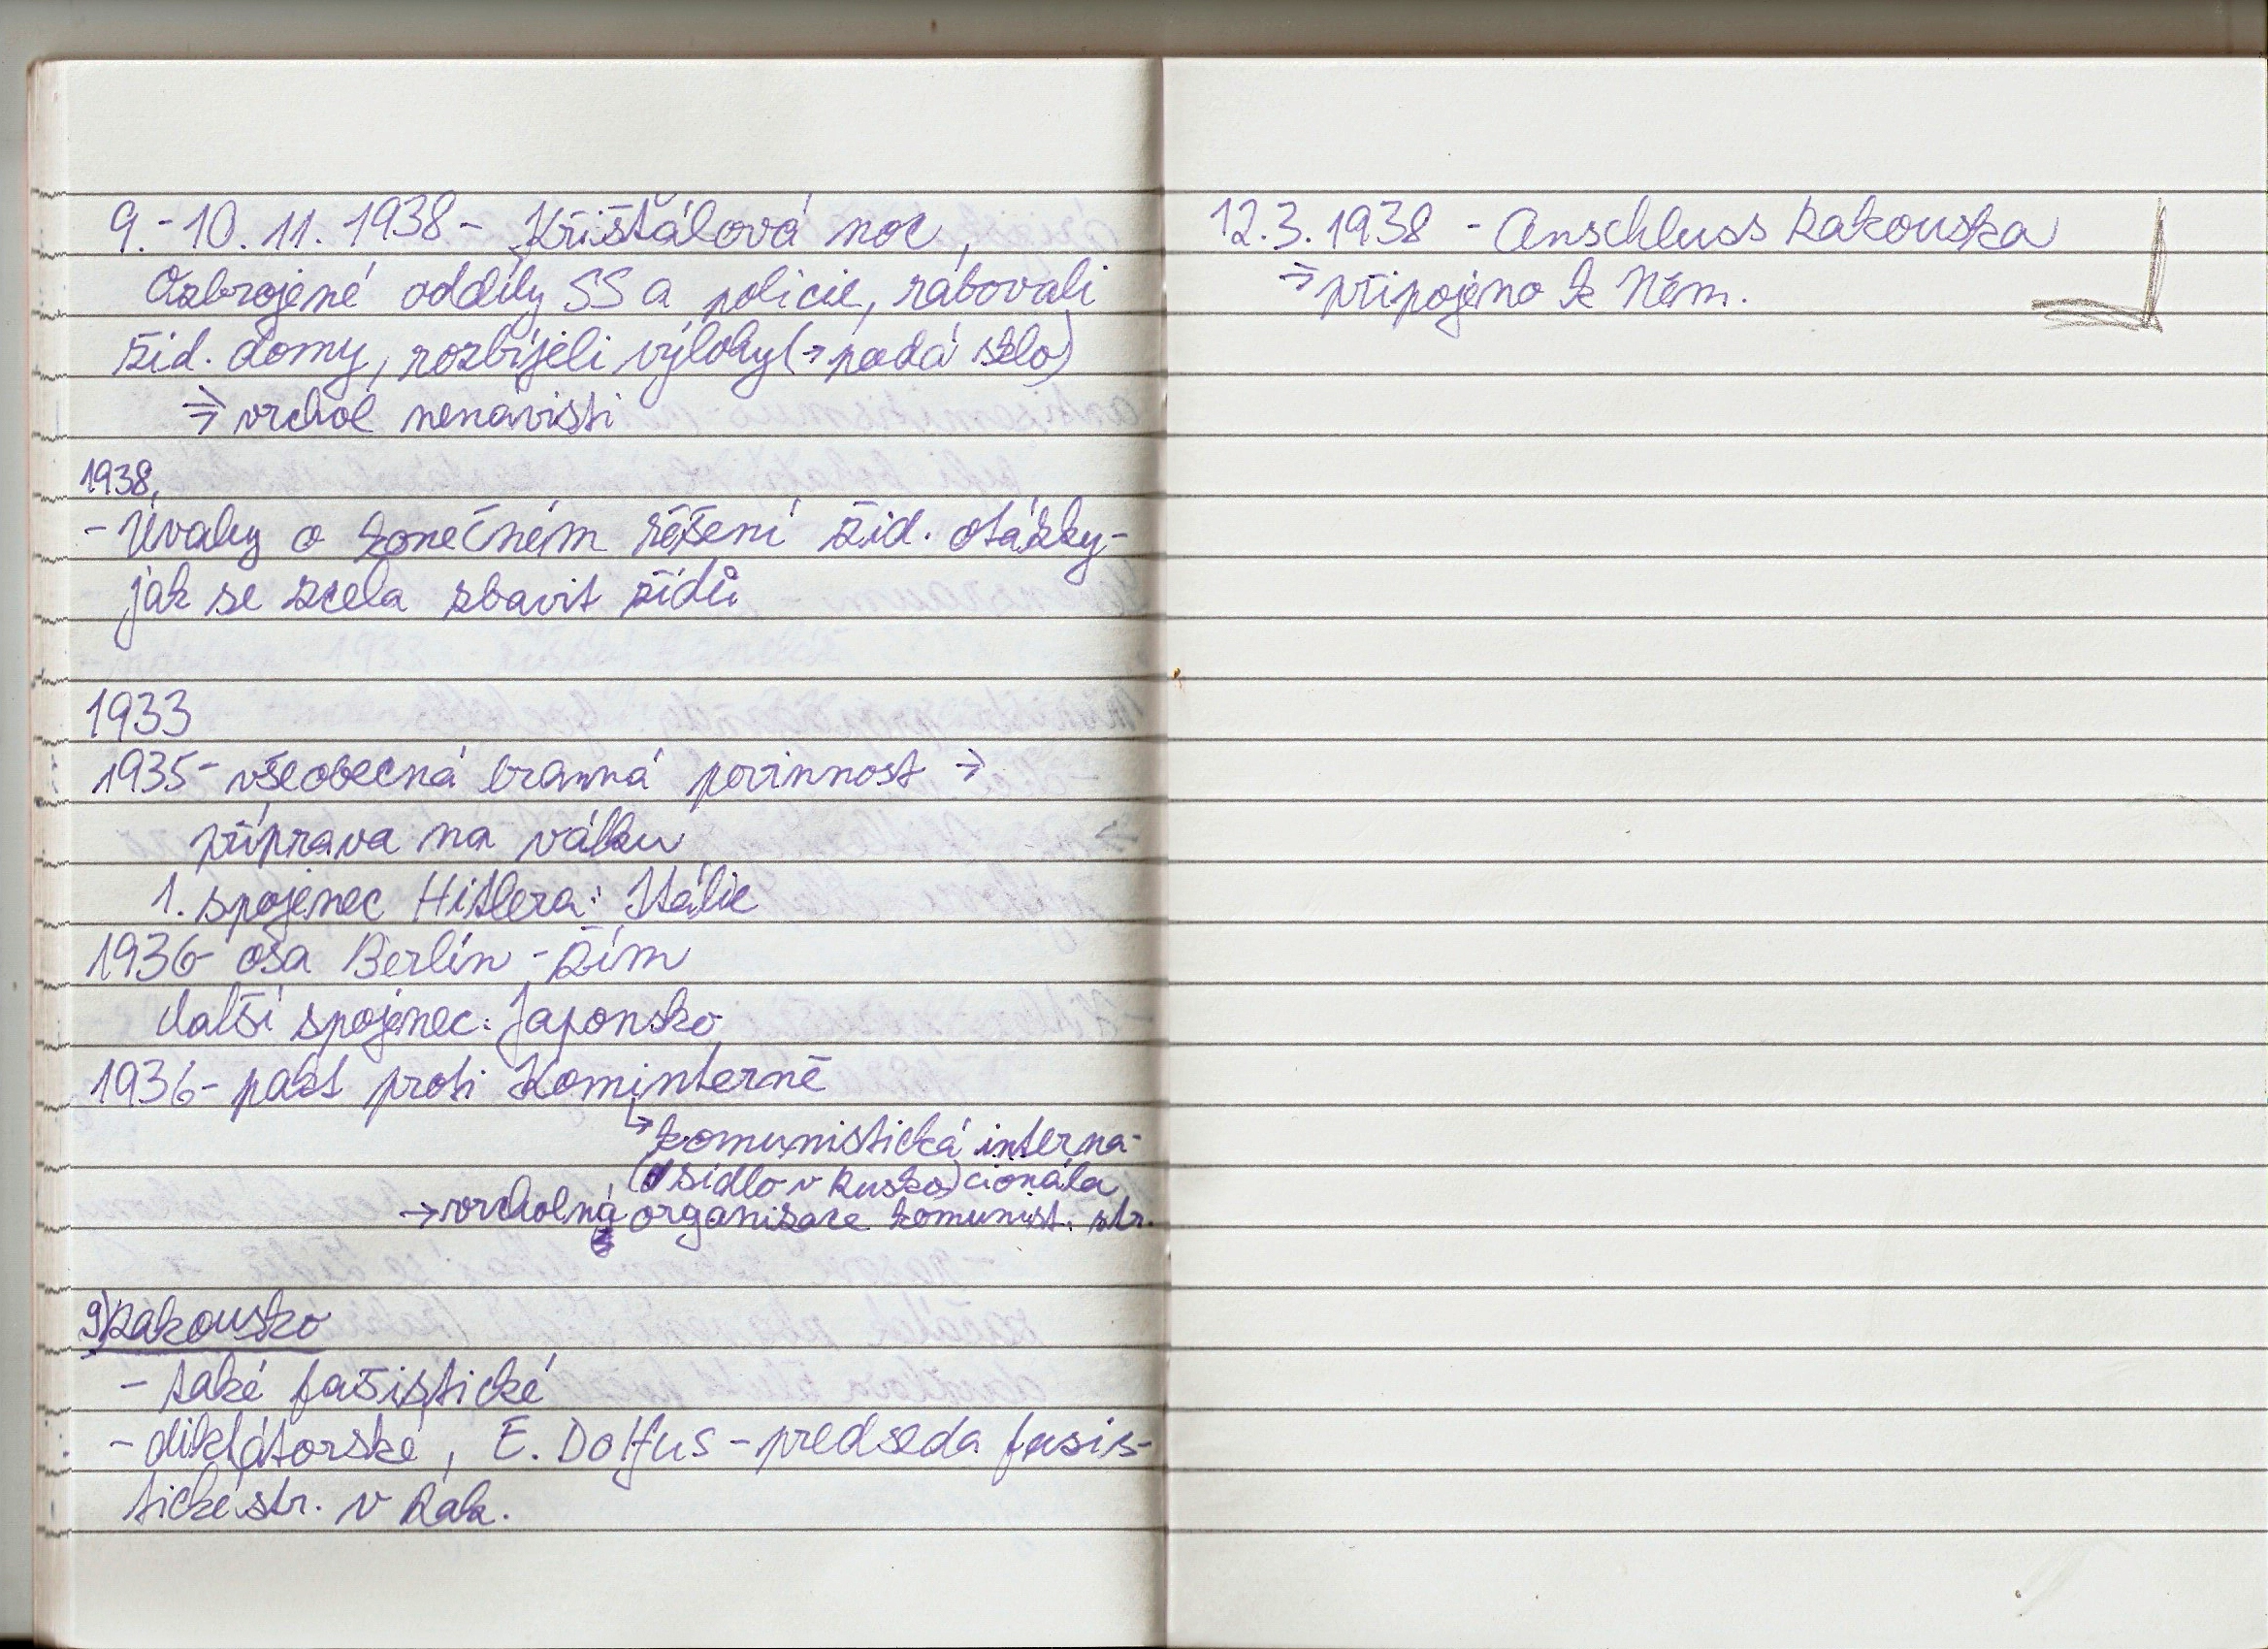 9.-10. 11. 1938 - Křišťálová noc,
Ozbrojené oddíly SS a policie, rabovali
žid. domy, rozbíjeli výlohy (→ padá sklo)
⇒ vrchol nenávisti
1938,
- Úvahy o konečném řešení žid. otázky -
jak se zcela zbavit židů
1933
1935 - všeobecná branná povinnost →
příprava na válku
1. spojenec Hitlera: Itálie
1936 - osa Berlín - Řím
další spojenec: Japonsko
1936 - pakt proti Kominterně
↳ komunistická interna-
(sídlo v Rusko) cionála
→ vrcholná organizace komunist. str.
9) Rakousko
- také fašistické
- diktátorské, E. Dolfus - předseda fašis-
tické str. v Rak.
12.3.1938 - Anschluss Rakouska
→ připojeno k Něm.